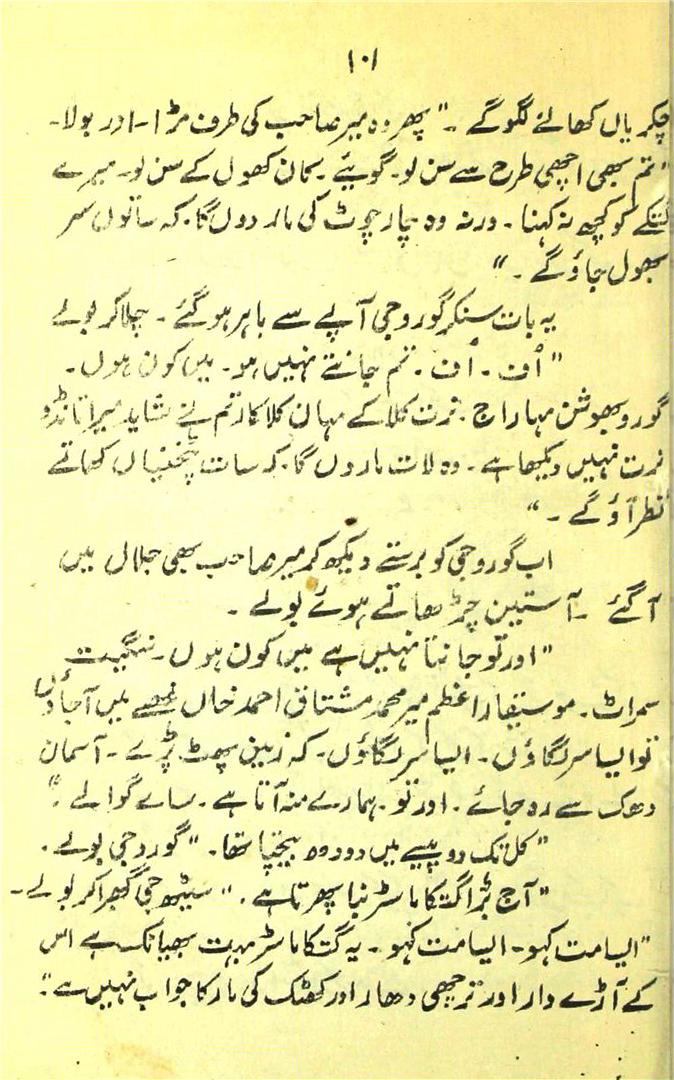 ۱۰۱
چکریاں کھانے لگو گے ۔" پھر وہ میر صاحب کی طرف مڑا۔ اور بولا۔
"تم بھی اچھی طرح سے سن لو۔ گویئے ۔ کان کھول کے سن لو۔ میرے
گتکے کو کچھ نہ کہنا ۔ ورنہ وہ چار چوٹ کی مار دوں گا۔ کہ ساتوں سر
بھول جاؤ گے ۔ "
یہ بات سنکر گوروجی آپے سے باہر ہو گئے ۔ چلا کر بولے
"اُف ۔ اُف ۔ تم جانتے نہیں ہو۔ میں کون ہوں ۔
گورو بھوشن مہاراج ۔ نرت کلا کے مہان کلا کار تم نے شاید میرا تانڈو
نرت نہیں دیکھا ہے ۔ وہ لات ماروں گا۔ کہ سات پٹخنیاں کھاتے
نظر آؤ گے ۔ "
اب گوروجی کو برستے دیکھ کر میر صاحب بھی جلال میں
آگئے ۔ آستین چڑھاتے ہوئے بولے ۔
"اور تو جانتا نہیں ہے میں کون ہوں ۔ سنگیت
سمراٹ ۔ موسیقار اعظم میر محمد مشتاق احمد خاں غصے میں آجاؤں
تو ایسا سر لگاؤں ۔ ایسا سر لگاؤں ۔ کہ زمین پھٹ پڑے ۔ آسمان
دھک سے رہ جائے ۔ اور تو ۔ ہمارے منہ آتا ہے ۔ سالے گوالے ۔"
"کل تک دو پیسے میں دودھ بیچتا تھا ۔" گوروجی بولے ۔
"آج بڑا گتکا ماسٹر بنا پھرتا ہے ۔" سیٹھ جی گھبرا کر بولے ۔
"ایسا مت کہو ۔ ایسا مت کہو ۔ یہ گتکا ماسٹر بہت بھیانک ہے اس
کے آڑے وار اور ترچھی دھار اور کھٹک کی مار کا جواب نہیں ہے ۔"